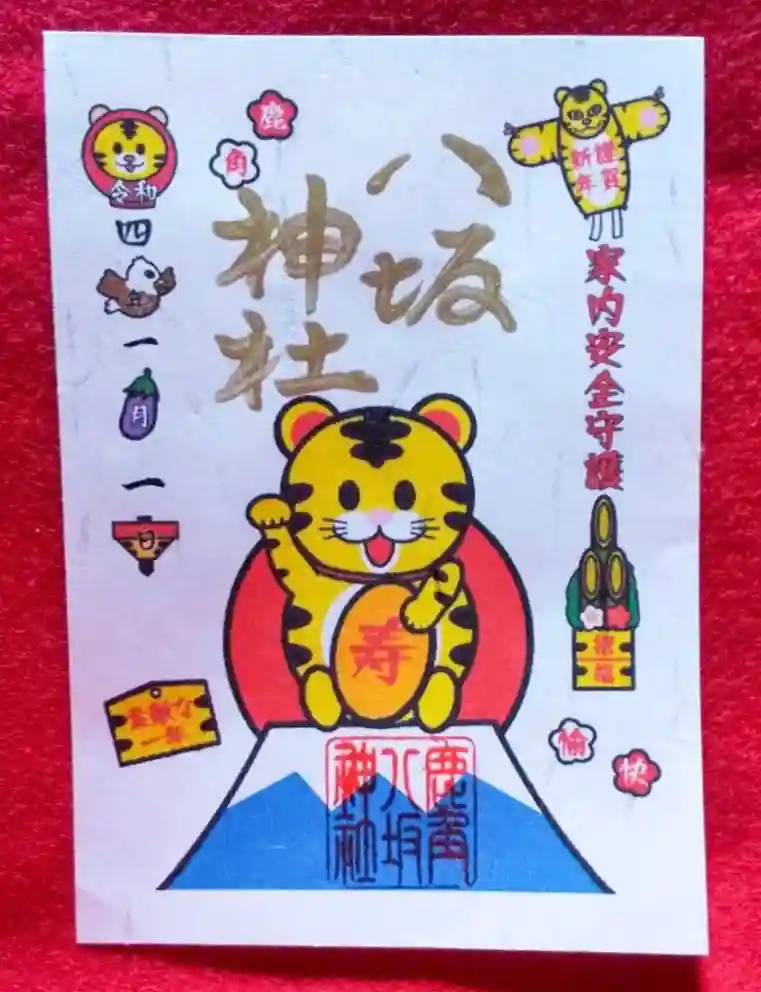 謹賀
新年
家内安全守護
鹿角
八坂
神社
令和
四年一月一日
寿
素敵な
一年
愉快
鹿角
八坂
神社